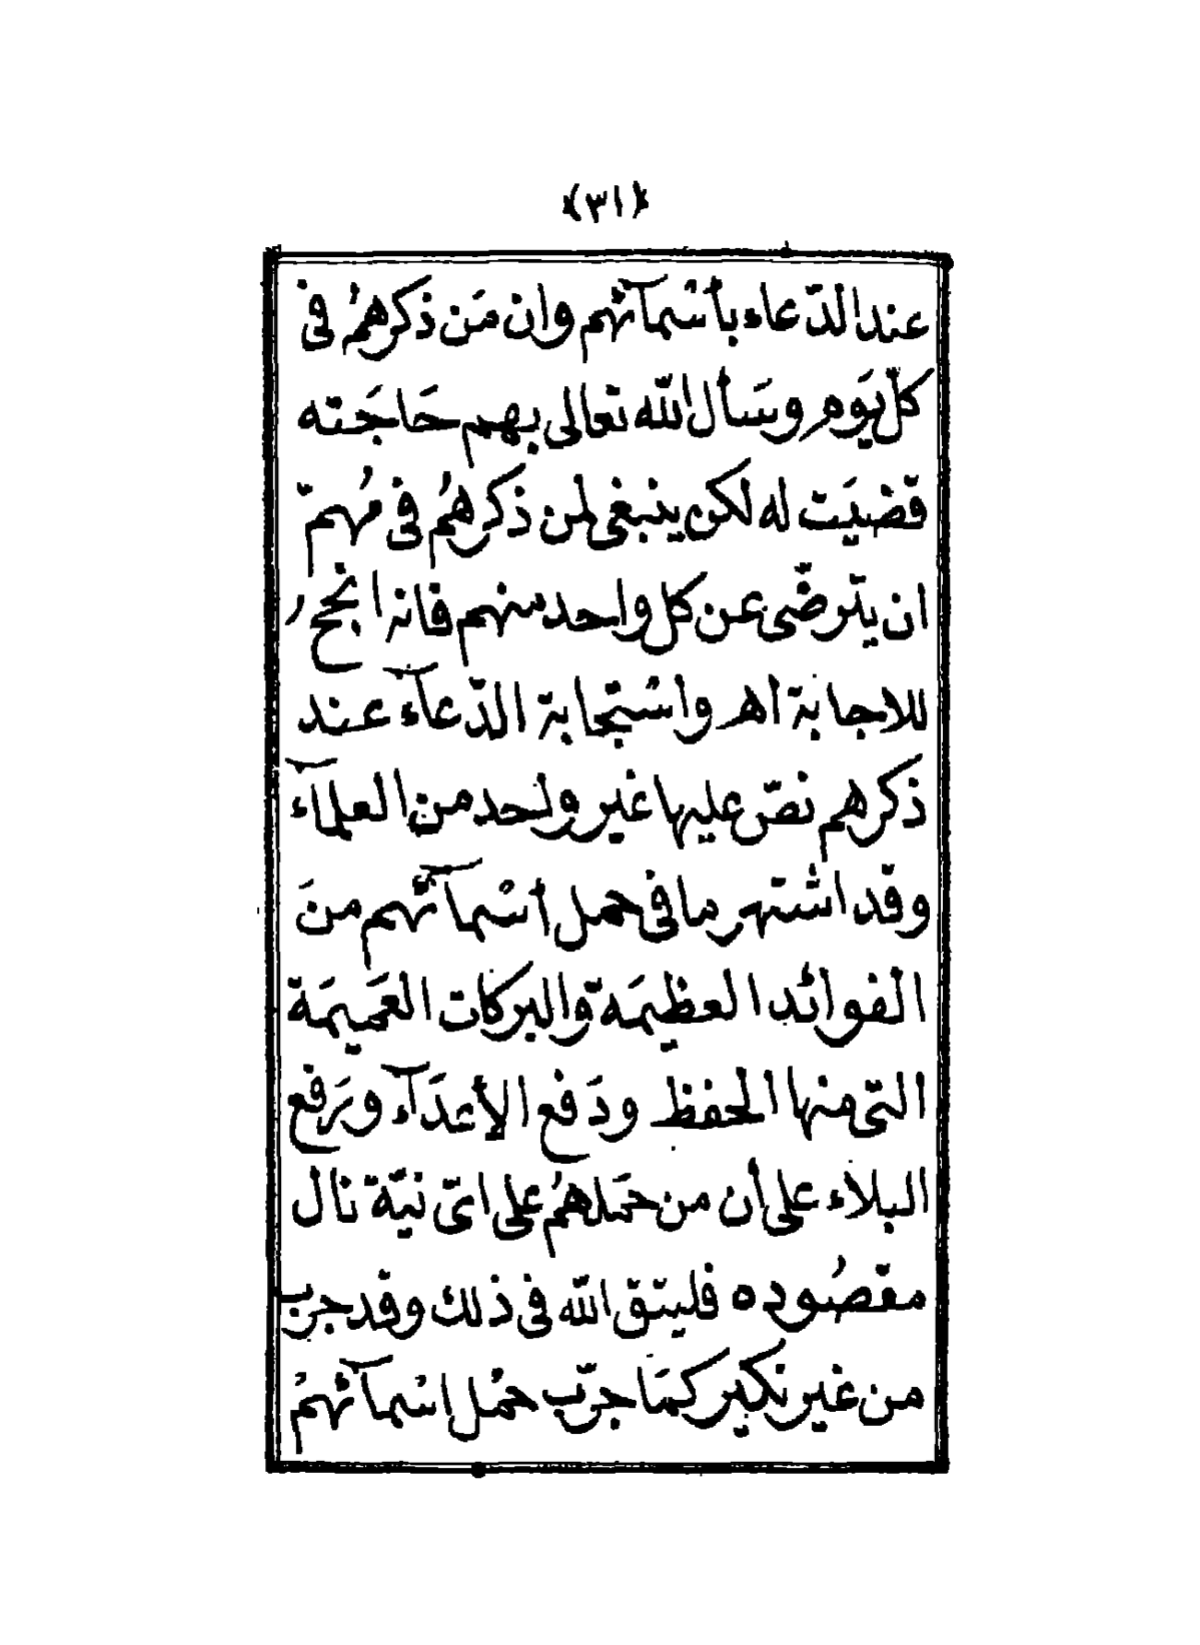 ﴿٣١﴾
عند الدّعاء بأسْمآئهم وان مَن ذكرهمُ فى
كلّ يَوم وسَأل اللّه تعالى بهم حَاجَته
قضيَت له لكن ينبغى لمن ذكرهُم فى مُهمّ
ان يترضّى عن كل واحد منهم فانه انجح
للاجابة اهـ واسْتجابة الدّعآء عند
ذكرهم نصّ عليها غير واحد من العلمآء
وقد اشتهر ما فى حمل أسْمآئهم منَ
الفوائد العظيمَة والبركات العَميمَة
التى منها الحفظ ودَفع الأعدَآء ورَفع
البلاء على أن من حمَلهُم على اىّ نيّة نال
مقصُوده فليتق اللّه فى ذلك وقد جرب
من غير نكير كمَا جرّب حمْل اسْمآئهمْ